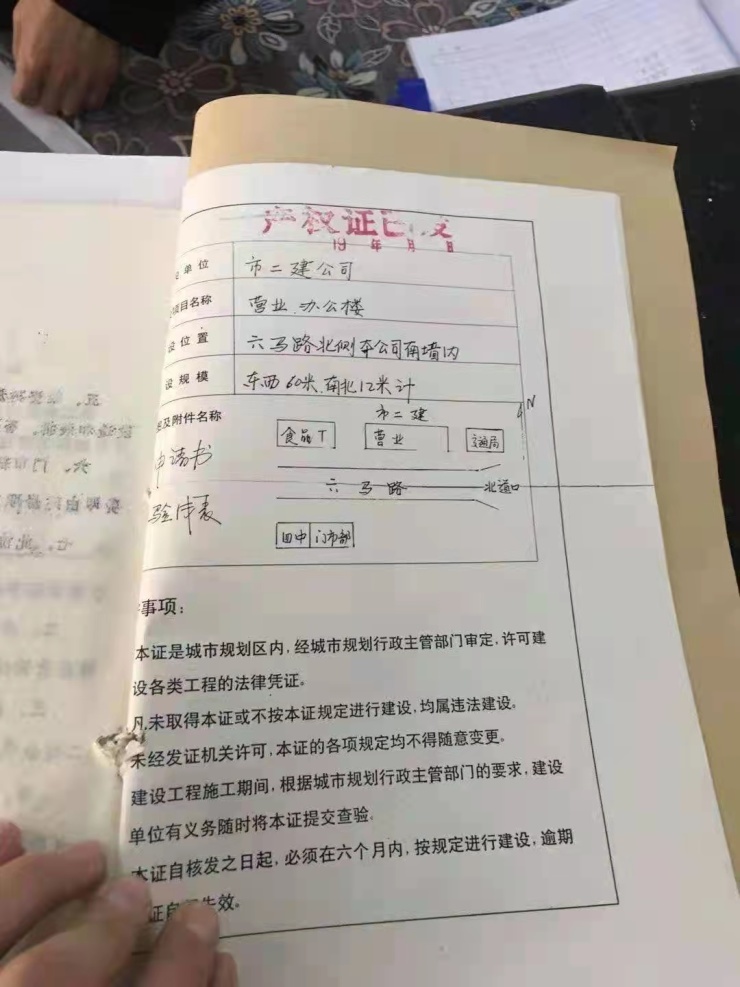 产权证已发
19 年 月 日
单位 市二建公司
项目名称 营业.办公楼
设位置 六马路北侧本公司南墙内
设规模 东西60米.南北12米计
及附件名称
申请书
市二建
N
食品
营业
交通局
六马路
北道口
田中 门市部
事项：
本证是城市规划区内，经城市规划行政主管部门审定，许可建
设各类工程的法律凭证。
凡未取得本证或不按本证规定进行建设，均属违法建设。
未经发证机关许可，本证的各项规定均不得随意变更。
建设工程施工期间，根据城市规划行政主管部门的要求，建设
单位有义务随时将本证提交查验。
本证自核发之日起，必须在六个月内，按规定进行建设，逾期
证自 失效。